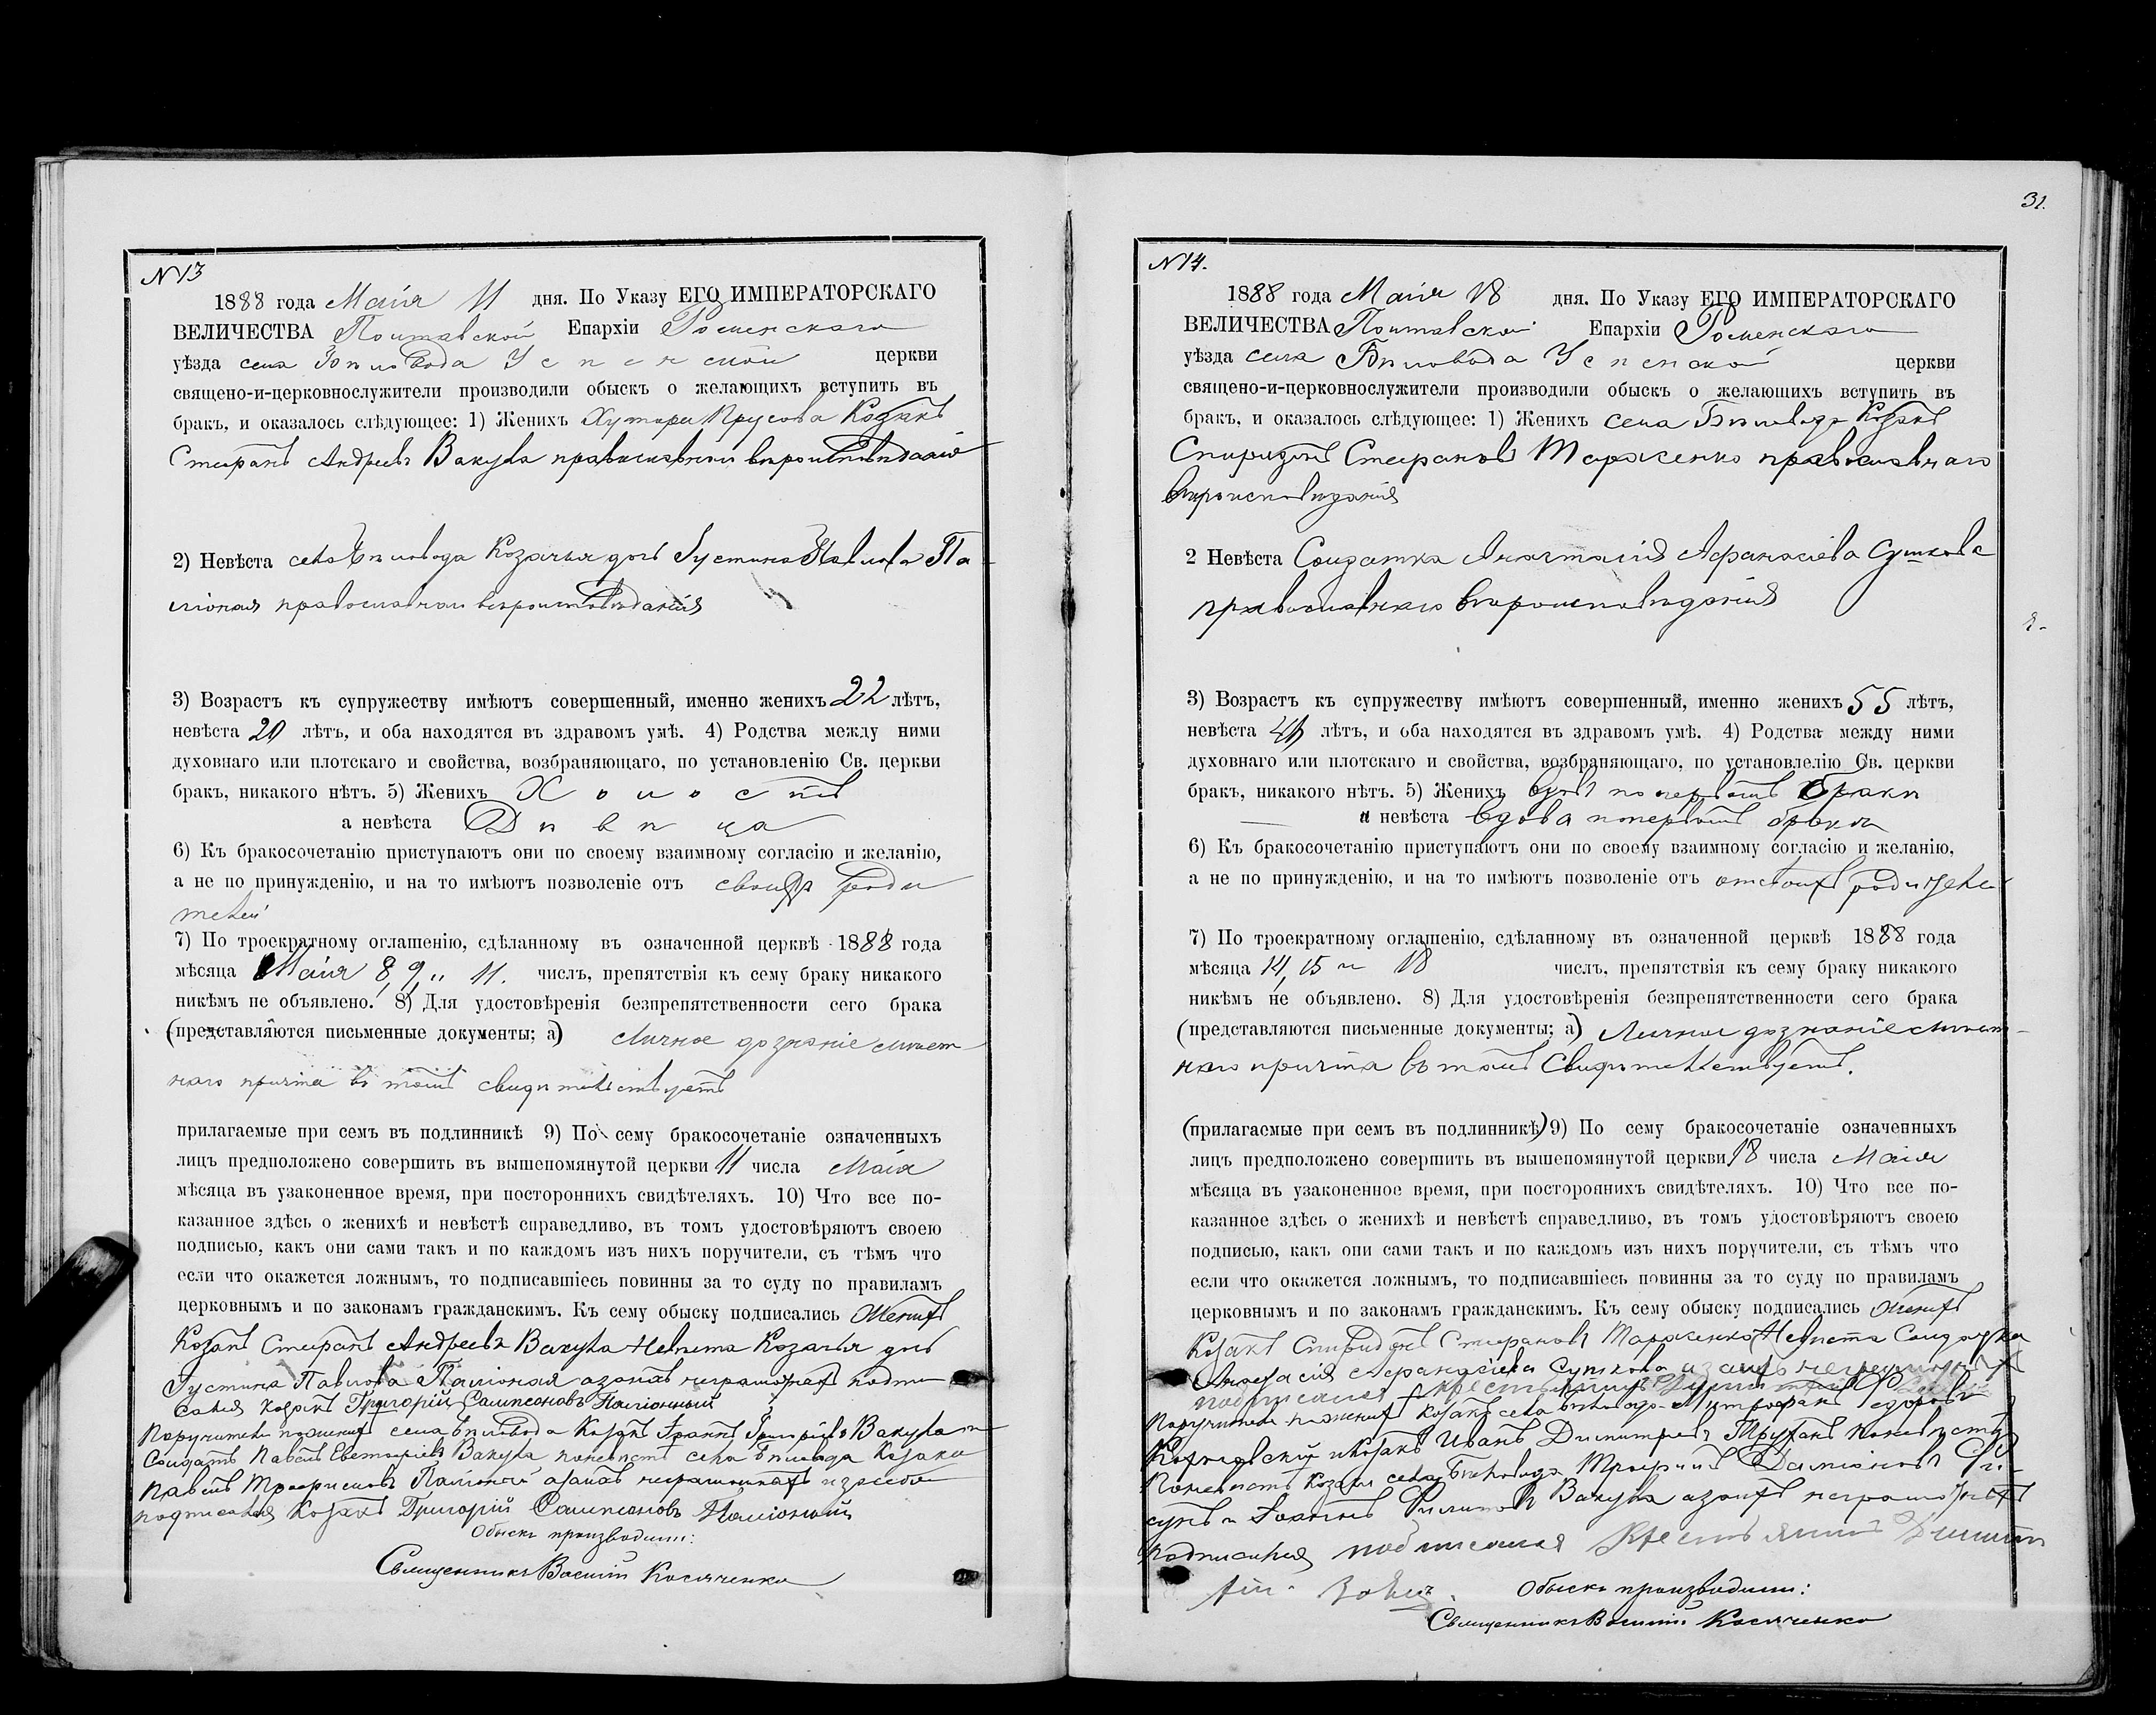 N 13
1888 года Маія 11 дня. По Указу ЕГО ИМПЕРАТОРСКАГО
ВЕЛИЧЕСТВА Полтавской Епархіи Роменскаго
уѣзда села Бѣловода Успенской церкви
священо-и-церковнослужители производили обыскъ о желающихъ вступить въ
бракъ, и оказалось слѣдующее: 1) Женихъ Хутора Прусова Козакъ
Стефанъ Андреевъ Вакула православнаго вѣроисповѣданія
2) Невѣста села Бѣловода Козачья дочь Іустина Павлова Па
ліоная православнаго вѣроисповѣданія
3) Возрастъ къ супружеству имѣютъ совершенный, именно женихъ 22 лѣтъ,
невѣста 20 лѣтъ, и оба находятся въ здравомъ умѣ. 4) Родства между ними
духовнаго или плотскаго и свойства, возбраняющаго, по установленію Св. церкви
бракъ, никакого нѣтъ. 5) Женихъ Холостъ
а невѣста Дѣвица
6) Къ бракосочетанію приступаютъ они по своему взаимному согласію и желанію,
а не по принужденію, и на то имѣютъ позволеніе отъ своихъ роди
телей
7) По троекратному оглашенію, сдѣланному въ означенной церквѣ 1888 года
мѣсяца Маія 8, 9, и 11. числъ, препятствія къ сему браку никакого
никѣмъ не объявлено. 8) Для удостовѣренія безпрепятственности сего брака
(представляются письменные документы; а) личное дознаніе мѣст
наго причта въ томъ свидѣтельствуетъ
прилагаемые при семъ въ подлинникѣ 9) По сему бракосочетаніе означенныхъ
лицъ предположено совершить въ вышепомянутой церкви 11 числа Маія
мѣсяца въ узаконенное время, при постороннихъ свидѣтеляхъ. 10) Что все по-
казанное здѣсь о женихѣ и невѣстѣ справедливо, въ томъ удостовѣряютъ своею
подписью, какъ они сами такъ и по каждомъ изъ нихъ поручители, съ тѣмъ что
если что окажется ложнымъ, то подписавшіесь повинны за то суду по правиламъ
церковнымъ и по законамъ гражданскимъ. Къ сему обыску подписались Женихъ
Козакъ Стефанъ Андреевъ Вакула Невѣста Козачья дочь
Іустина Павлова Паліоная а за нихъ неграмотныхъ подпи
сался козакъ Григорій Сампсоновъ Паліонный
Поручители по женихѣ села Бѣловода Козакъ Іоаннъ Григоріевъ Вакула и
Солдатъ Павелъ Вакула по невѣстѣ села Бѣловода Козаки
Павелъ Трофимовъ Паліоный а за нихъ неграмотныхъ и за себя
подписался Козакъ Григорій Сампсоновъ Паліонный
Обыскъ производили:
Священникъ Василій Косяченко
31.
N 14.
1888 года Маія 18 дня. По Указу ЕГО ИМПЕРАТОРСКАГО
ВЕЛИЧЕСТВА Полтавской Епархіи Роменскаго
уѣзда села Бѣловода Успенской церкви
священо-и-церковнослужители производили обыскъ о желающихъ вступить въ
бракъ, и оказалось слѣдующее: 1) Женихъ села Бѣловода Козакъ
Спиридонъ Стефановъ Тараженко православнаго
вѣроисповѣданія
2 Невѣста Солдатка Анастасія Афанасіева Суткова
православнаго вѣроисповѣданія
3) Возрастъ къ супружеству имѣютъ совершенный, именно женихъ 55 лѣтъ,
невѣста лѣтъ, и оба находятся въ здравомъ умѣ. 4) Родства между ними
духовнаго или плотскаго и свойства, возбраняющаго, по установлелію Св. церкви
бракъ, никакого нѣтъ. 5) Женихъ вдовъ по первомъ бракѣ
и невѣста вдова по первомъ бракѣ
6) Къ бракосочетанію приступаютъ они по своему взаимному согласію и желанію,
а не по принужденію, и на то имѣютъ позволеніе отъ отъ своихъ родителей
7) По троекратному оглашенію, сдѣланному въ означенной церквѣ 1888 года
мѣсяца 14, 15 и 18 числъ, препятствія къ сему браку никакого
никѣмъ не объявлено. 8) Для удостовѣренія безпрепятственности сего брака
(представляются письменные документы; а) Личное дознаніе мѣст-
наго причта въ томъ Свидѣтельствуетъ.
(прилагаемые при семъ въ подлинникѣ) 9) По сему бракосочетаніе означенныхъ
лицъ предположено совершить въ вышепомянутой церкви 18 числа Маія
мѣсяца въ узаконенное время, при постороннихъ свидѣтеляхъ. 10) Что все по-
казанное здѣсь о женихѣ и невѣстѣ справедливо, въ томъ удостовѣряютъ своею
подписью, какъ они сами такъ и по каждомъ изъ нихъ поручители, съ тѣмъ что
если что окажется ложнымъ, то подписавшіесь повинны за то суду по правиламъ
церковнымъ и по законамъ гражданскимъ. Къ сему обыску подписались Женихъ
Козакъ Спиридонъ Стефановъ Тараженко Невѣста Солдатка
Анастасія Афанасіева Суткова а за нихъ неграмотныхъ
подписался крестьянинъ
Поручители по женихѣ козакъ села Бѣловода Митрофанъ
и Козакъ Иванъ Димитріевъ по невѣстѣ
По невѣстѣ Козаки села Бѣловода Трофимъ Даміановъ
и Іоаннъ Филиповъ Вакула а за нихъ неграмотныхъ
подписался подписался Крестьянинъ
Обыскъ производили:
Священникъ Василій Косяченко